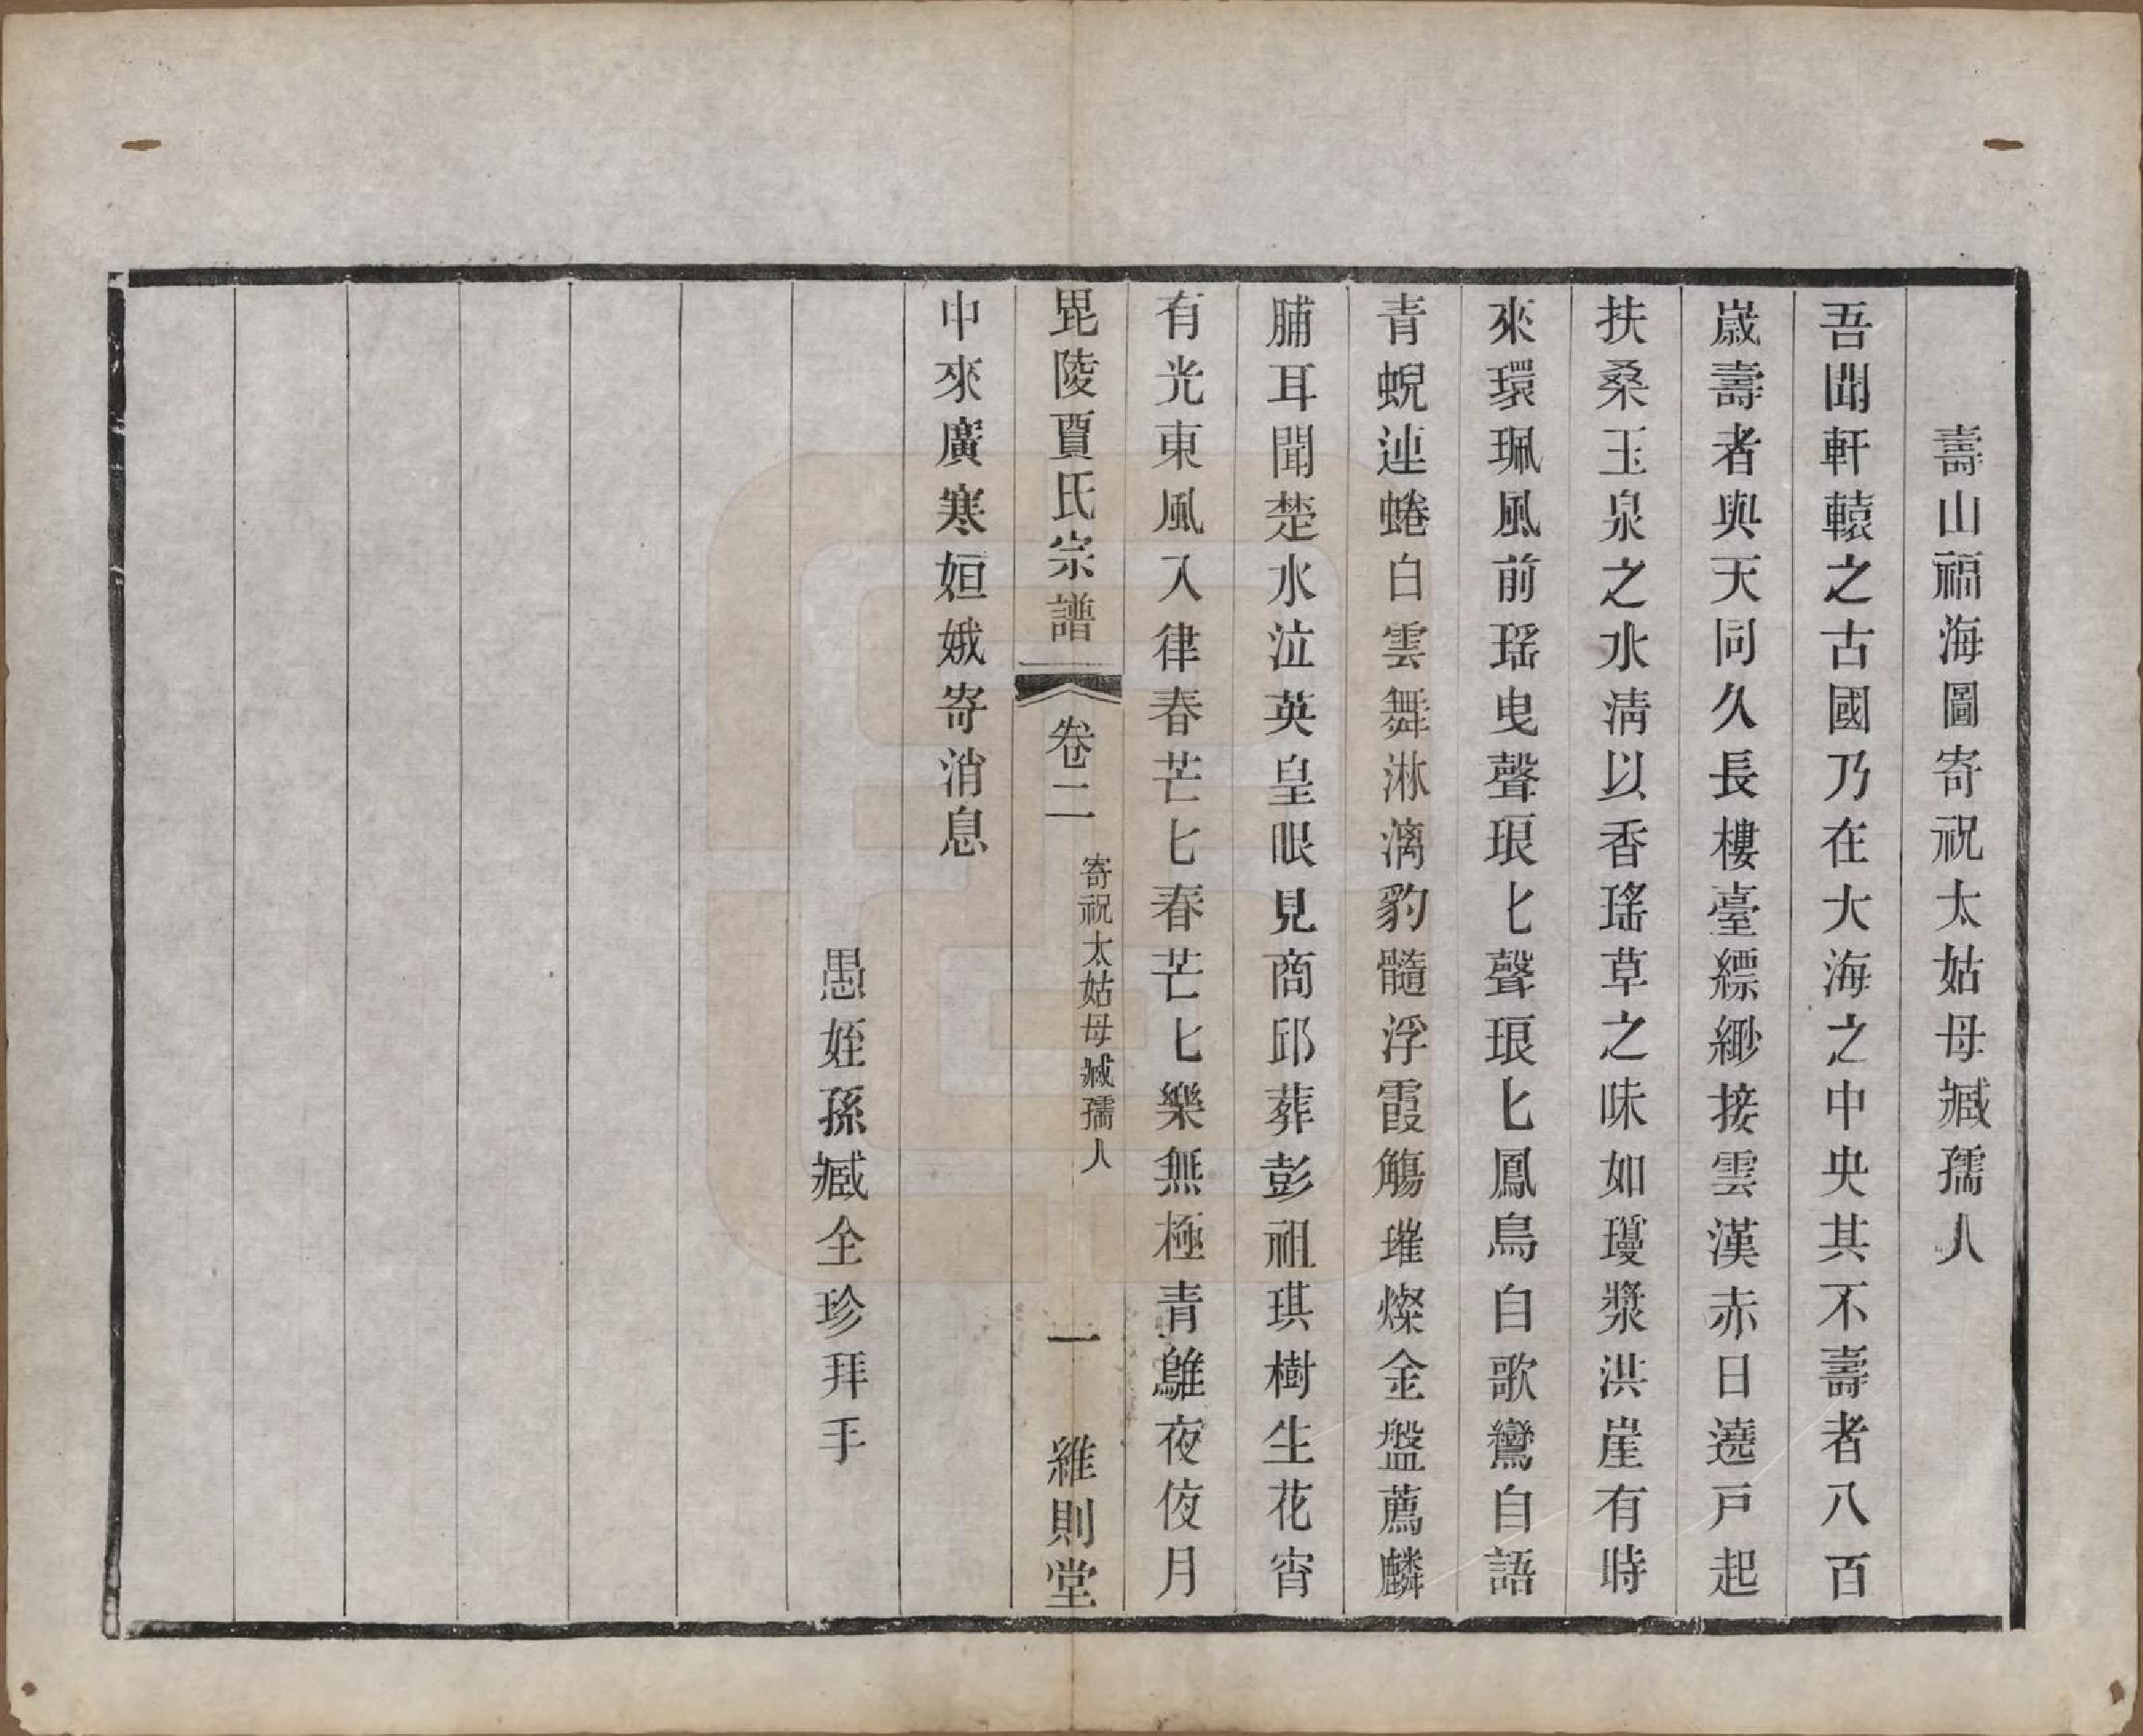 壽山福海圖寄祝太姑母臧孺人
吾聞軒轅之古國乃在大海之中央其不壽者八百
嵗壽者與天同久長樓臺縹緲接雲漢赤日遶戸起
扶桑玉泉之水淸以香瑤草之味如瓊漿洪崖有時
來環珮風前瑶曳聲琅匕聲琅匕鳳鳥自歌鸞自語
青蜺連蜷白雲舞淋漓豹髓浮霞觴璀燦金盤薦麟
脯耳聞楚水泣英皇眼見商邱葬彭祖琪樹生花宵
有光東風入律春芒匕春芒匕樂無極青鸐夜夜月
毘陵賈氏宗譜 卷二 寄祝太姑母臧孺人 一 維則堂
中來廣寒姮娥寄消息
愚姪孫臧全珍拜手